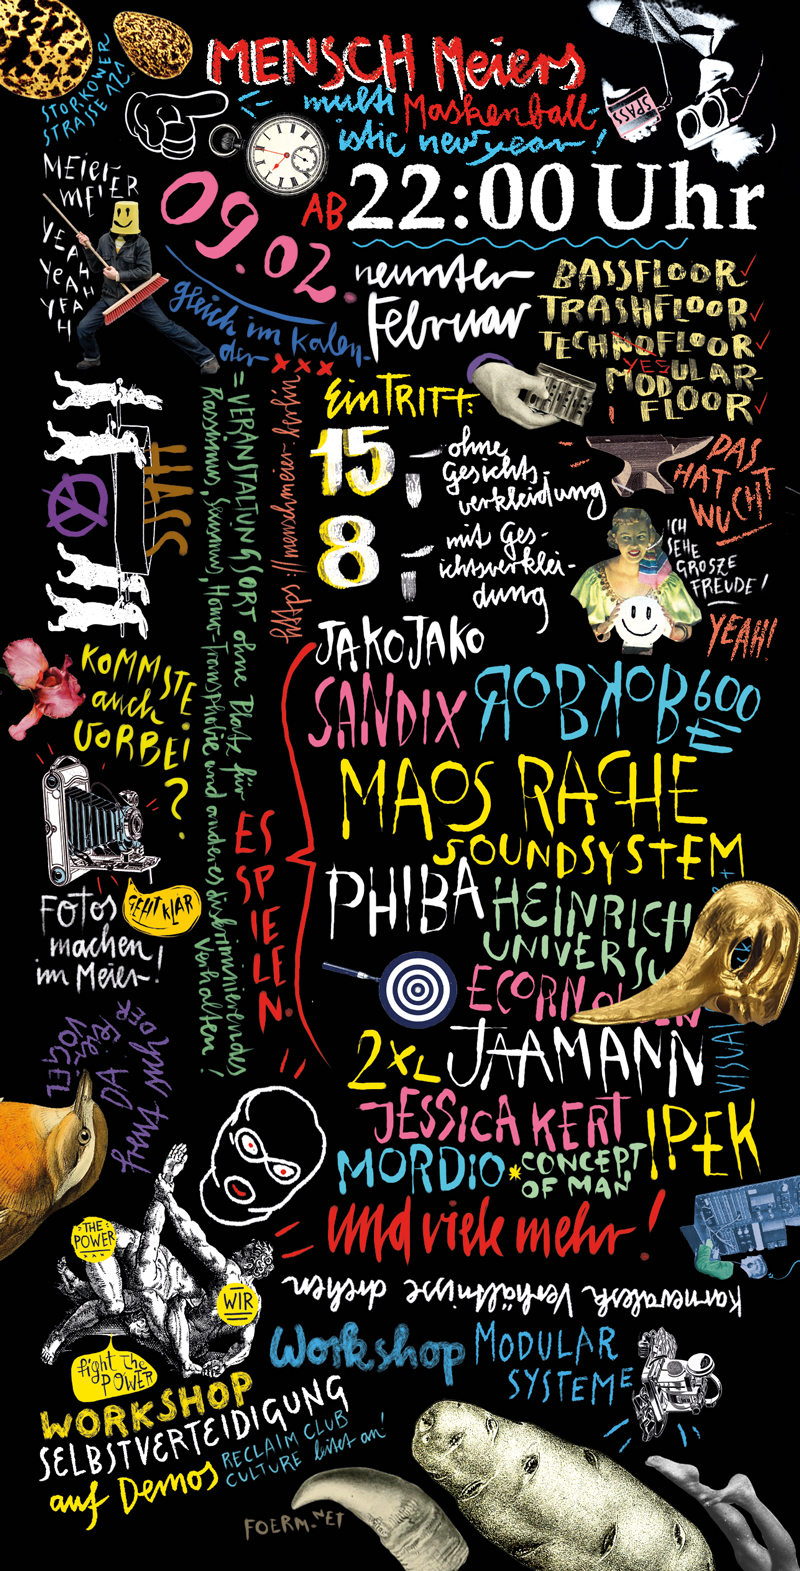 STORKOWER
STRASSE 121
MENSCH Meiers
multi Maskenball-
istic new year!
SPASS
MEIER
MEIER
YEAH
YEAH
YEA
H
09.02.
AB 22:00 Uhr
gleich im Kalen-
der xxx
neunter
Februar
BASSFLOOR
TRASHFLOOR
TECHNOFLOOR
YES
MODULAR-
FLOOR
HASS
= VERANSTALTUNGSORT ohne Platz für
Rassismus, Sexismus, Homo-Transphobie und anderes diskriminierendes
Verhalten!
https://menschmeier.berlin
EINTRITT:
15,- ohne
Gesichts-
verkleidung
8,- mit Ges-
ichtsverklei-
dung
DAS
HAT
WUCHT
ICH
SEHE
GROSZE
FREUDE!
YEAH!
KOMMSTE
auch
VORBEI
?
GEHT KLAR
FOTOS
machen
im Meier!
ES
SPIELEN:
JAKOJAKO
SANDIX
ROBKOB 600
E
MAOS RACHE
SOUNDSYSTEM
PHIBA
HEINRICH
UNIVERSU
ECORN
2XL
JAAMANN
VISUAL
JESSICA KERT
IPEK
MORDIO * CONCEPT
OF MAN
und viele mehr!
DA
freut
sich
DER
Feier
VOGEL
THE
POWER
WIR
fight the
POWER
Karnevalesk Verhältnisse drehen
Workshop MODULAR
SYSTEME
WORKSHOP
SELBSTVERTEIDIGUNG
auf Demos
RECLAIM CLUB
CULTURE
FOERM.NET